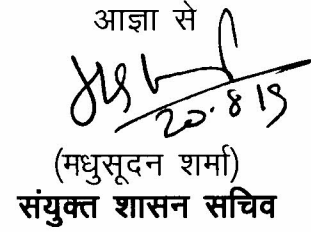 आज्ञा से
20.8.19
(मधुसूदन शर्मा)
संयुक्त शासन सचिव